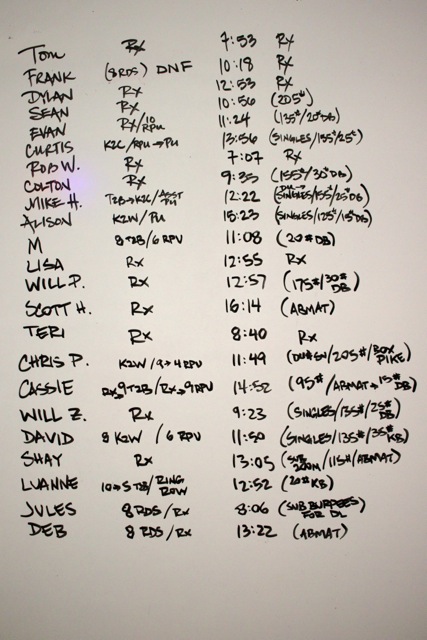 Tom Rx 7:53 Rx
FRANK (8RDS) DNF 10:18 Rx
DYLAN Rx 12:53 Rx
SEAN Rx 10:56 (2D5#)
EVAN Rx/10 RPU 11:24 (135#/20#DB)
CURTIS K2C/RPU→PU 13:56 (SINGLES/135#/25#)
ROB W. Rx 7:07 Rx
COLTON Rx 9:35 (155#/30#DB)
MIKE H. T2B→K2C/ASST PU 12:22 (SINGLES/155/25#DB)
ALISON K2W/PU 15:23 (SINGLES/125#/15#DB)
M 8 T2B/6 RPU 11:08 (20#DB)
LISA Rx 12:55 Rx
WILL P. Rx 12:57 (175#/30# DB)
SCOTT H. Rx 16:14 (ABMAT)
TERI Rx 8:40 Rx
CHRIS P. K2W/9→4RPU 11:49 (DU→SU/205#/BOX PIKE)
CASSIE Rx→9T2B/Rx→9RPU 14:52 (95#/ABMAT→15# DB)
WILL Z. Rx 9:23 (SINGLES/135#/25# DB)
DAVID 8 K2W / 6 RPU 11:50 (SINGLES/135#/35# KB)
SHAY Rx 13:05 (SUB 200M/115#/ABMAT)
LUANNE 10→5 TB/RING ROW 12:52 (20#KB)
JULES 8 RDS/Rx 8:06 (SUB BURPEES FOR DL)
DEB 8 RDS/Rx 13:22 (ABMAT)